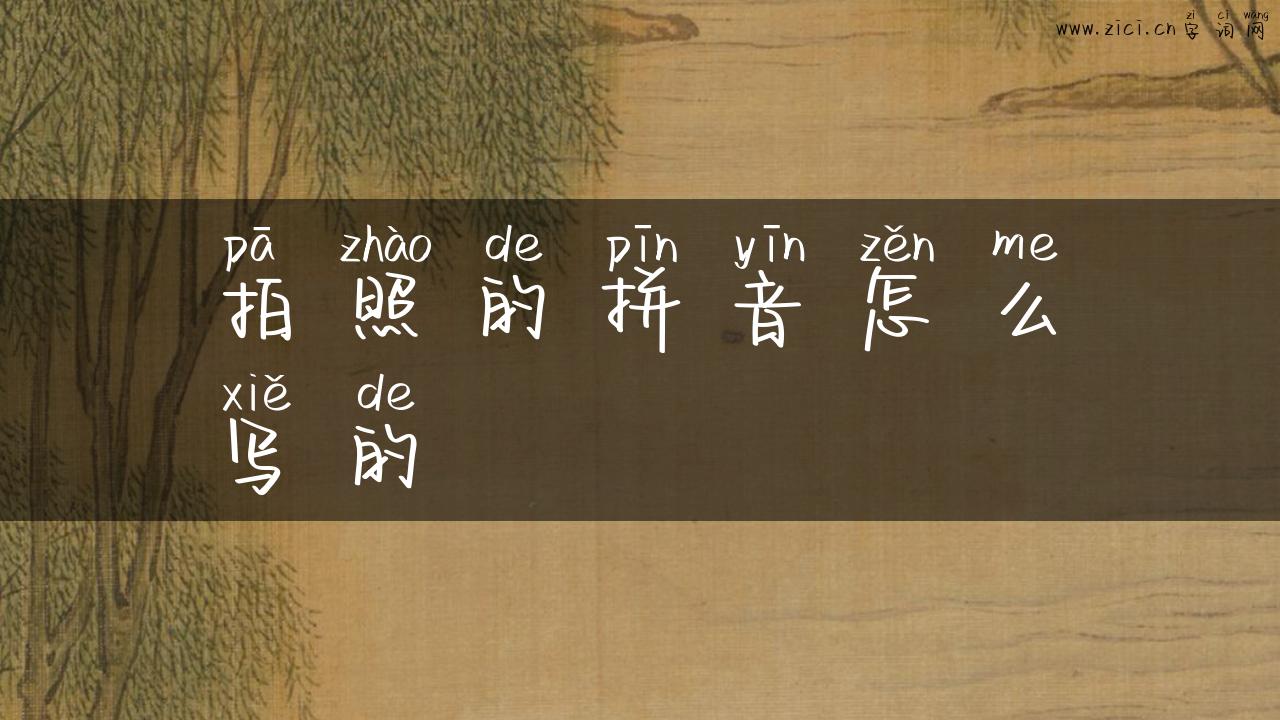 zì cí wǎng
www.zici.cn 字词网
pā zhào de pīn yīn zěn me
拍照的拼音怎么
xiě de
写的